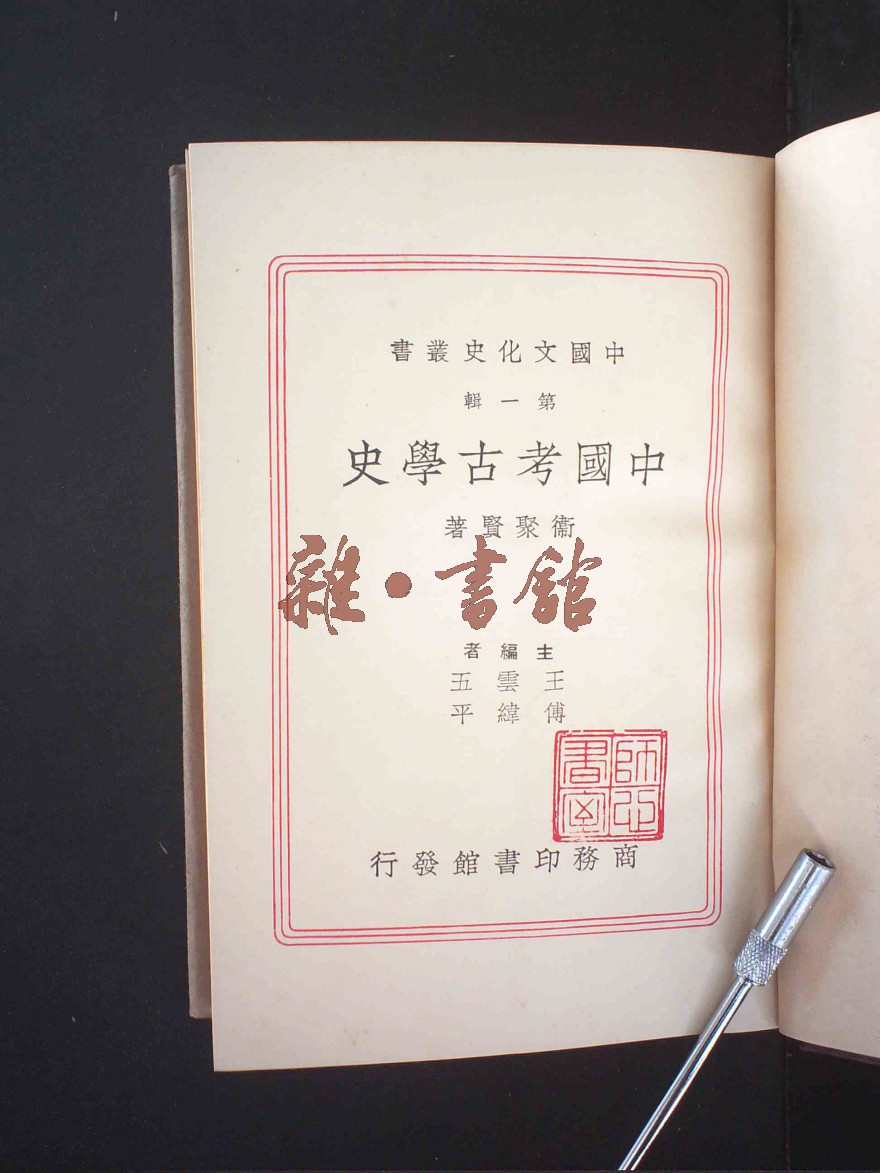 中國文化史叢書
第一輯
中國考古學史
衞聚賢著
雜·書館
主編者
王雲五
傅緯平
商務印書館發行